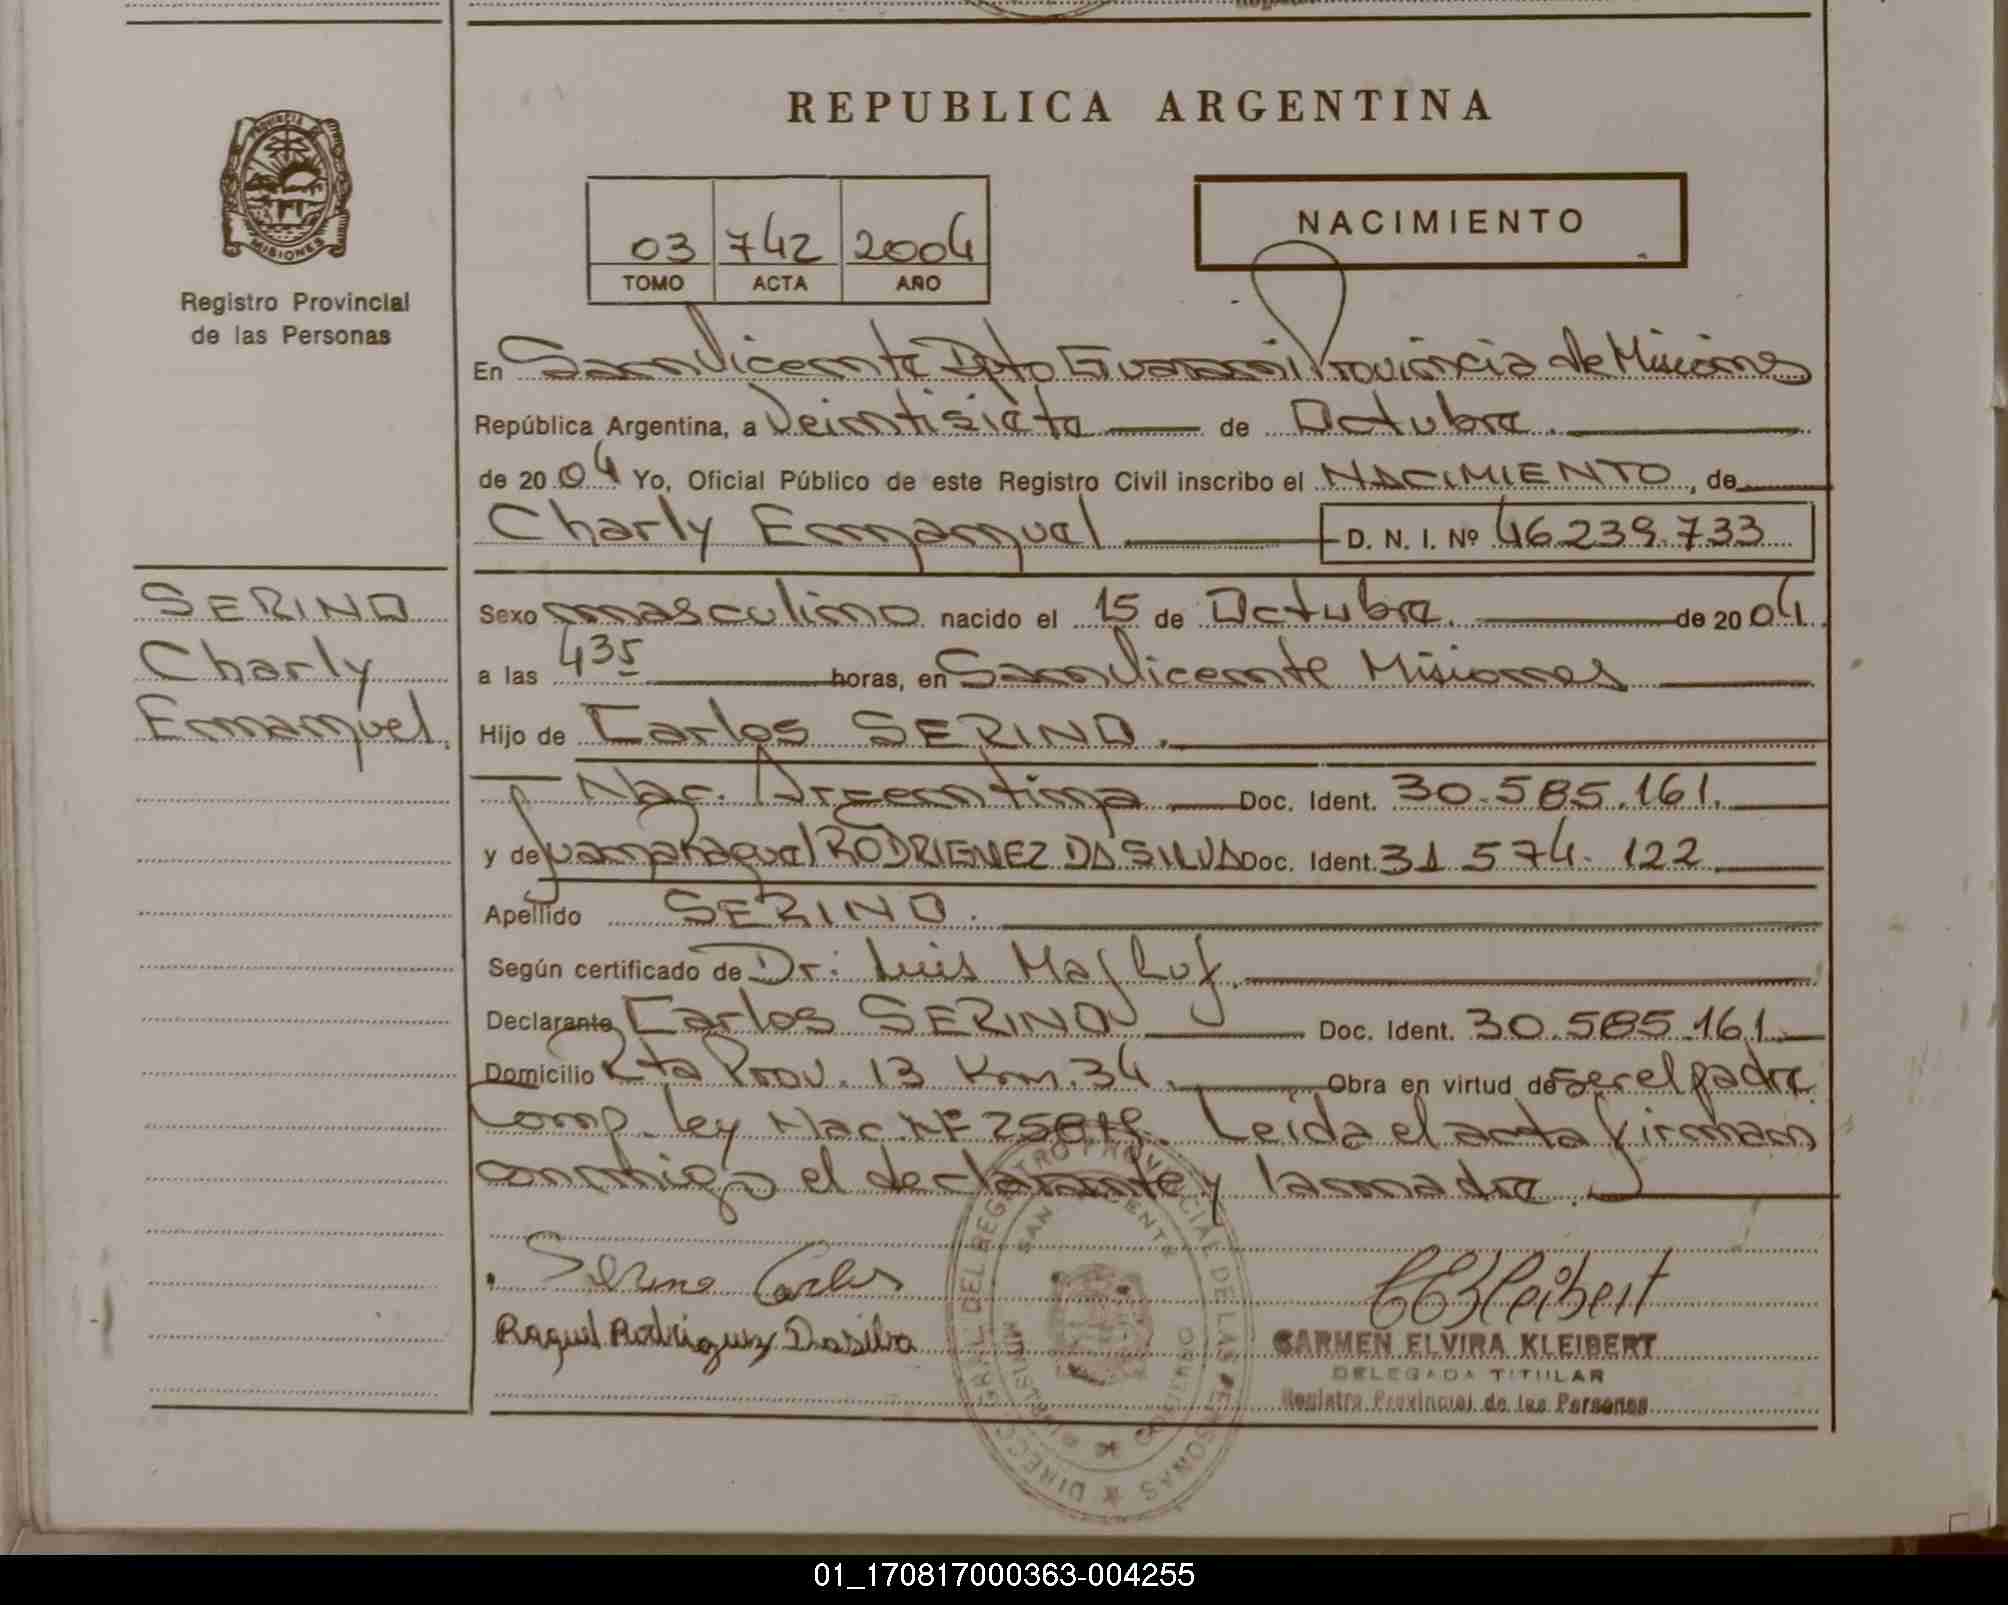 REPUBLICA ARGENTINA
PROVINCIA DE MISIONES
Registro Provincial
de las Personas
03 742 2004
TOMO ACTA AÑO
NACIMIENTO
En San Vicente Dpto Guarani Provincia de Misiones
República Argentina, a Veintisiete de Octubre.
de 20 04 Yo, Oficial Público de este Registro Civil inscribo el NACIMIENTO, de
Charly Emmanuel D. N. I. Nº 46.239.733
SERINO
Charly
Emmanuel.
Sexo masculino nacido el 15 de Octubre. de 20 04.
a las 4 35 horas, en San Vicente Misiones
Hijo de Carlos SERINO.
Nac. Argentina Doc. Ident. 30.585.161.
y de Juana Raquel RODRIGUEZ DA SILVA Doc. Ident. 31 574. 122
Apellido SERINO.
Según certificado de Dr: Luis
Declarante Carlos SERINO Doc. Ident. 30.585.161.
Domicilio Rta Prov. 13 Km. 34. Obra en virtud de ser el padre
Comp. Ley Nac. Leida el acta firman
conmigo el declarante y la madre.
Serino Carlos
Raquel Rodriguez Dasilva
CEKleibert
CARMEN ELVIRA KLEIBERT
DELEGADA TITULAR
Registro Provincial de las Personas
DIRECC. GRAL. DEL REGISTRO PROVINCIAL DE LAS PERSONAS
SAN VICENTE
MINISTERIO GOBIERNO
01_170817000363-004255